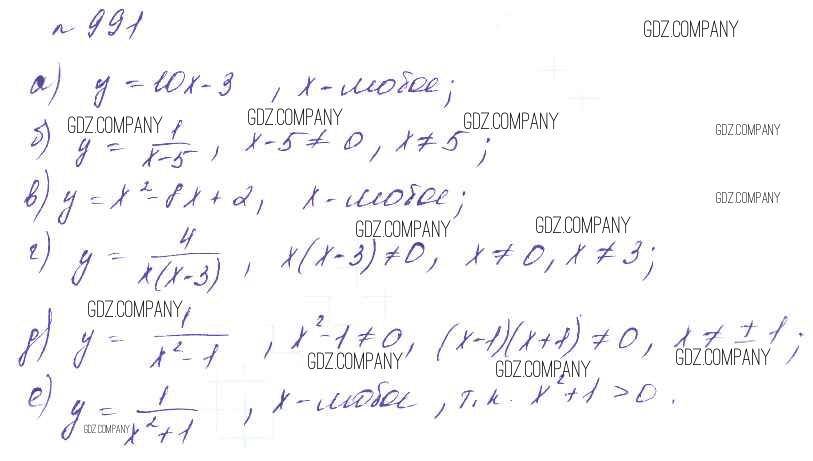 № 991
GDZ.COMPANY
а) y = 10x - 3, x - любое;
GDZ.COMPANY GDZ.COMPANY GDZ.COMPANY GDZ.COMPANY
б) y = 1/(x-5), x-5 ≠ 0, x ≠ 5;
в) y = x² - 8x + 2, x - любое; GDZ.COMPANY
GDZ.COMPANY GDZ.COMPANY
г) y = 4/(x(x-3)), x(x-3) ≠ 0, x ≠ 0, x ≠ 3;
GDZ.COMPANY
д) y = 1/(x²-1), x²-1 ≠ 0, (x-1)(x+1) ≠ 0, x ≠ ±1;
GDZ.COMPANY GDZ.COMPANY GDZ.COMPANY
е) y = 1/(x²+1), x - любое, т.к. x²+1 > 0.
GDZ.COMPANY